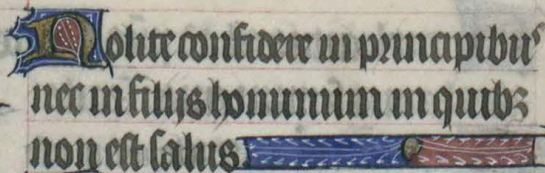 Nolite confidere in principibus
nec in filijs hominum in quibz
non est salus.